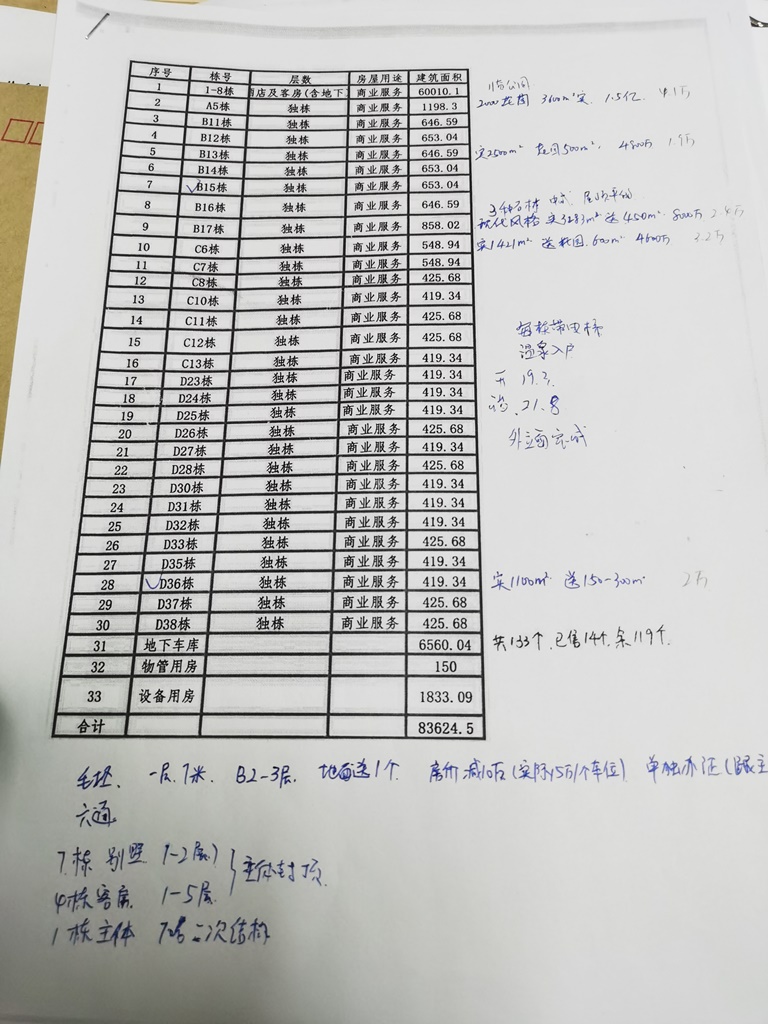 序号 栋号 层数 房屋用途 建筑面积
1 1-8栋 酒店及客房(含地下 商业服务 60010.1
2000花园 3600m²实 1.5亿 4.1万
2 A5栋 独栋 商业服务 1198.3
3 B11栋 独栋 商业服务 646.59
4 B12栋 独栋 商业服务 653.04
5 B13栋 独栋 商业服务 646.59 实2500m² 花园500m² 4800万 1.9万
6 B14栋 独栋 商业服务 653.04
7 B15栋 独栋 商业服务 653.04
8 B16栋 独栋 商业服务 646.59
9 B17栋 独栋 商业服务 858.02 现代风格 实3283m² 送450m² 8000万 2.4万
10 C6栋 独栋 商业服务 548.94 实1421m² 送花园 600m² 4600万 3.2万
11 C7栋 独栋 商业服务 548.94
12 C8栋 独栋 商业服务 425.68
13 C10栋 独栋 商业服务 419.34
14 C11栋 独栋 商业服务 425.68
15 C12栋 独栋 商业服务 425.68 每栋带电梯
温泉入户
16 C13栋 独栋 商业服务 419.34
17 D23栋 独栋 商业服务 419.34 开 19.3.
18 D24栋 独栋 商业服务 419.34
19 D25栋 独栋 商业服务 419.34 21.8
20 D26栋 独栋 商业服务 425.68 外立面完成
21 D27栋 独栋 商业服务 419.34
22 D28栋 独栋 商业服务 425.68
23 D30栋 独栋 商业服务 419.34
24 D31栋 独栋 商业服务 419.34
25 D32栋 独栋 商业服务 419.34
26 D33栋 独栋 商业服务 425.68
27 D35栋 独栋 商业服务 419.34
28 D36栋 独栋 商业服务 419.34 实1100m² 送150-300m² 2万
29 D37栋 独栋 商业服务 425.68
30 D38栋 独栋 商业服务 425.68
31 地下车库 6560.04 共133个.已售14个.余119个.
32 物管用房 150
33 设备用房 1833.09
合计 83624.5
毛坯. 一层.7米. B2-3层. 地面送1个. 房价减10万(实际15万/个车位) 单独办证(跟主
六通
7栋 别墅 1-2层
4栋客房 1-5层 } 主体封顶
1栋主体 二次结构